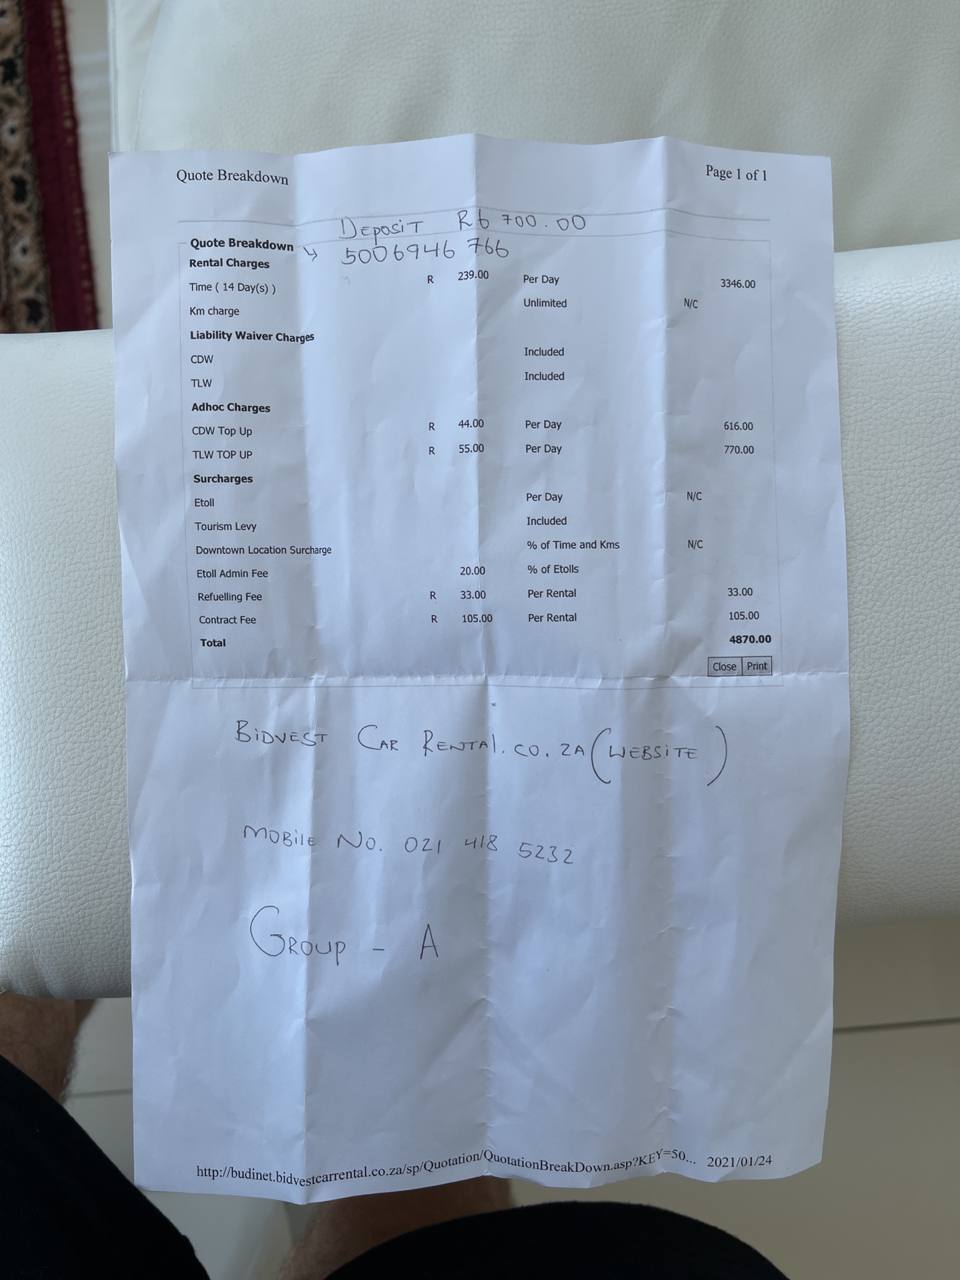 Quote Breakdown Page 1 of 1
DEPOSIT R6 700.00
Quote Breakdown ↳ 5006946 766
Rental Charges
Time ( 14 Day(s) ) R 239.00 Per Day 3346.00
Km charge Unlimited N/C
Liability Waiver Charges
CDW Included
TLW Included
Adhoc Charges
CDW Top Up R 44.00 Per Day 616.00
TLW TOP UP R 55.00 Per Day 770.00
Surcharges
Etoll Per Day N/C
Tourism Levy Included
Downtown Location Surcharge % of Time and Kms N/C
Etoll Admin Fee 20.00 % of Etolls
Refuelling Fee R 33.00 Per Rental 33.00
Contract Fee R 105.00 Per Rental 105.00
Total 4870.00
Close Print
BIDVEST CAR RENTAL.CO.ZA (WEBSITE)
MOBILE NO. 021 418 5232
GROUP - A
http://budinet.bidvestcarrental.co.za/sp/Quotation/QuotationBreakDown.asp?KEY=50... 2021/01/24